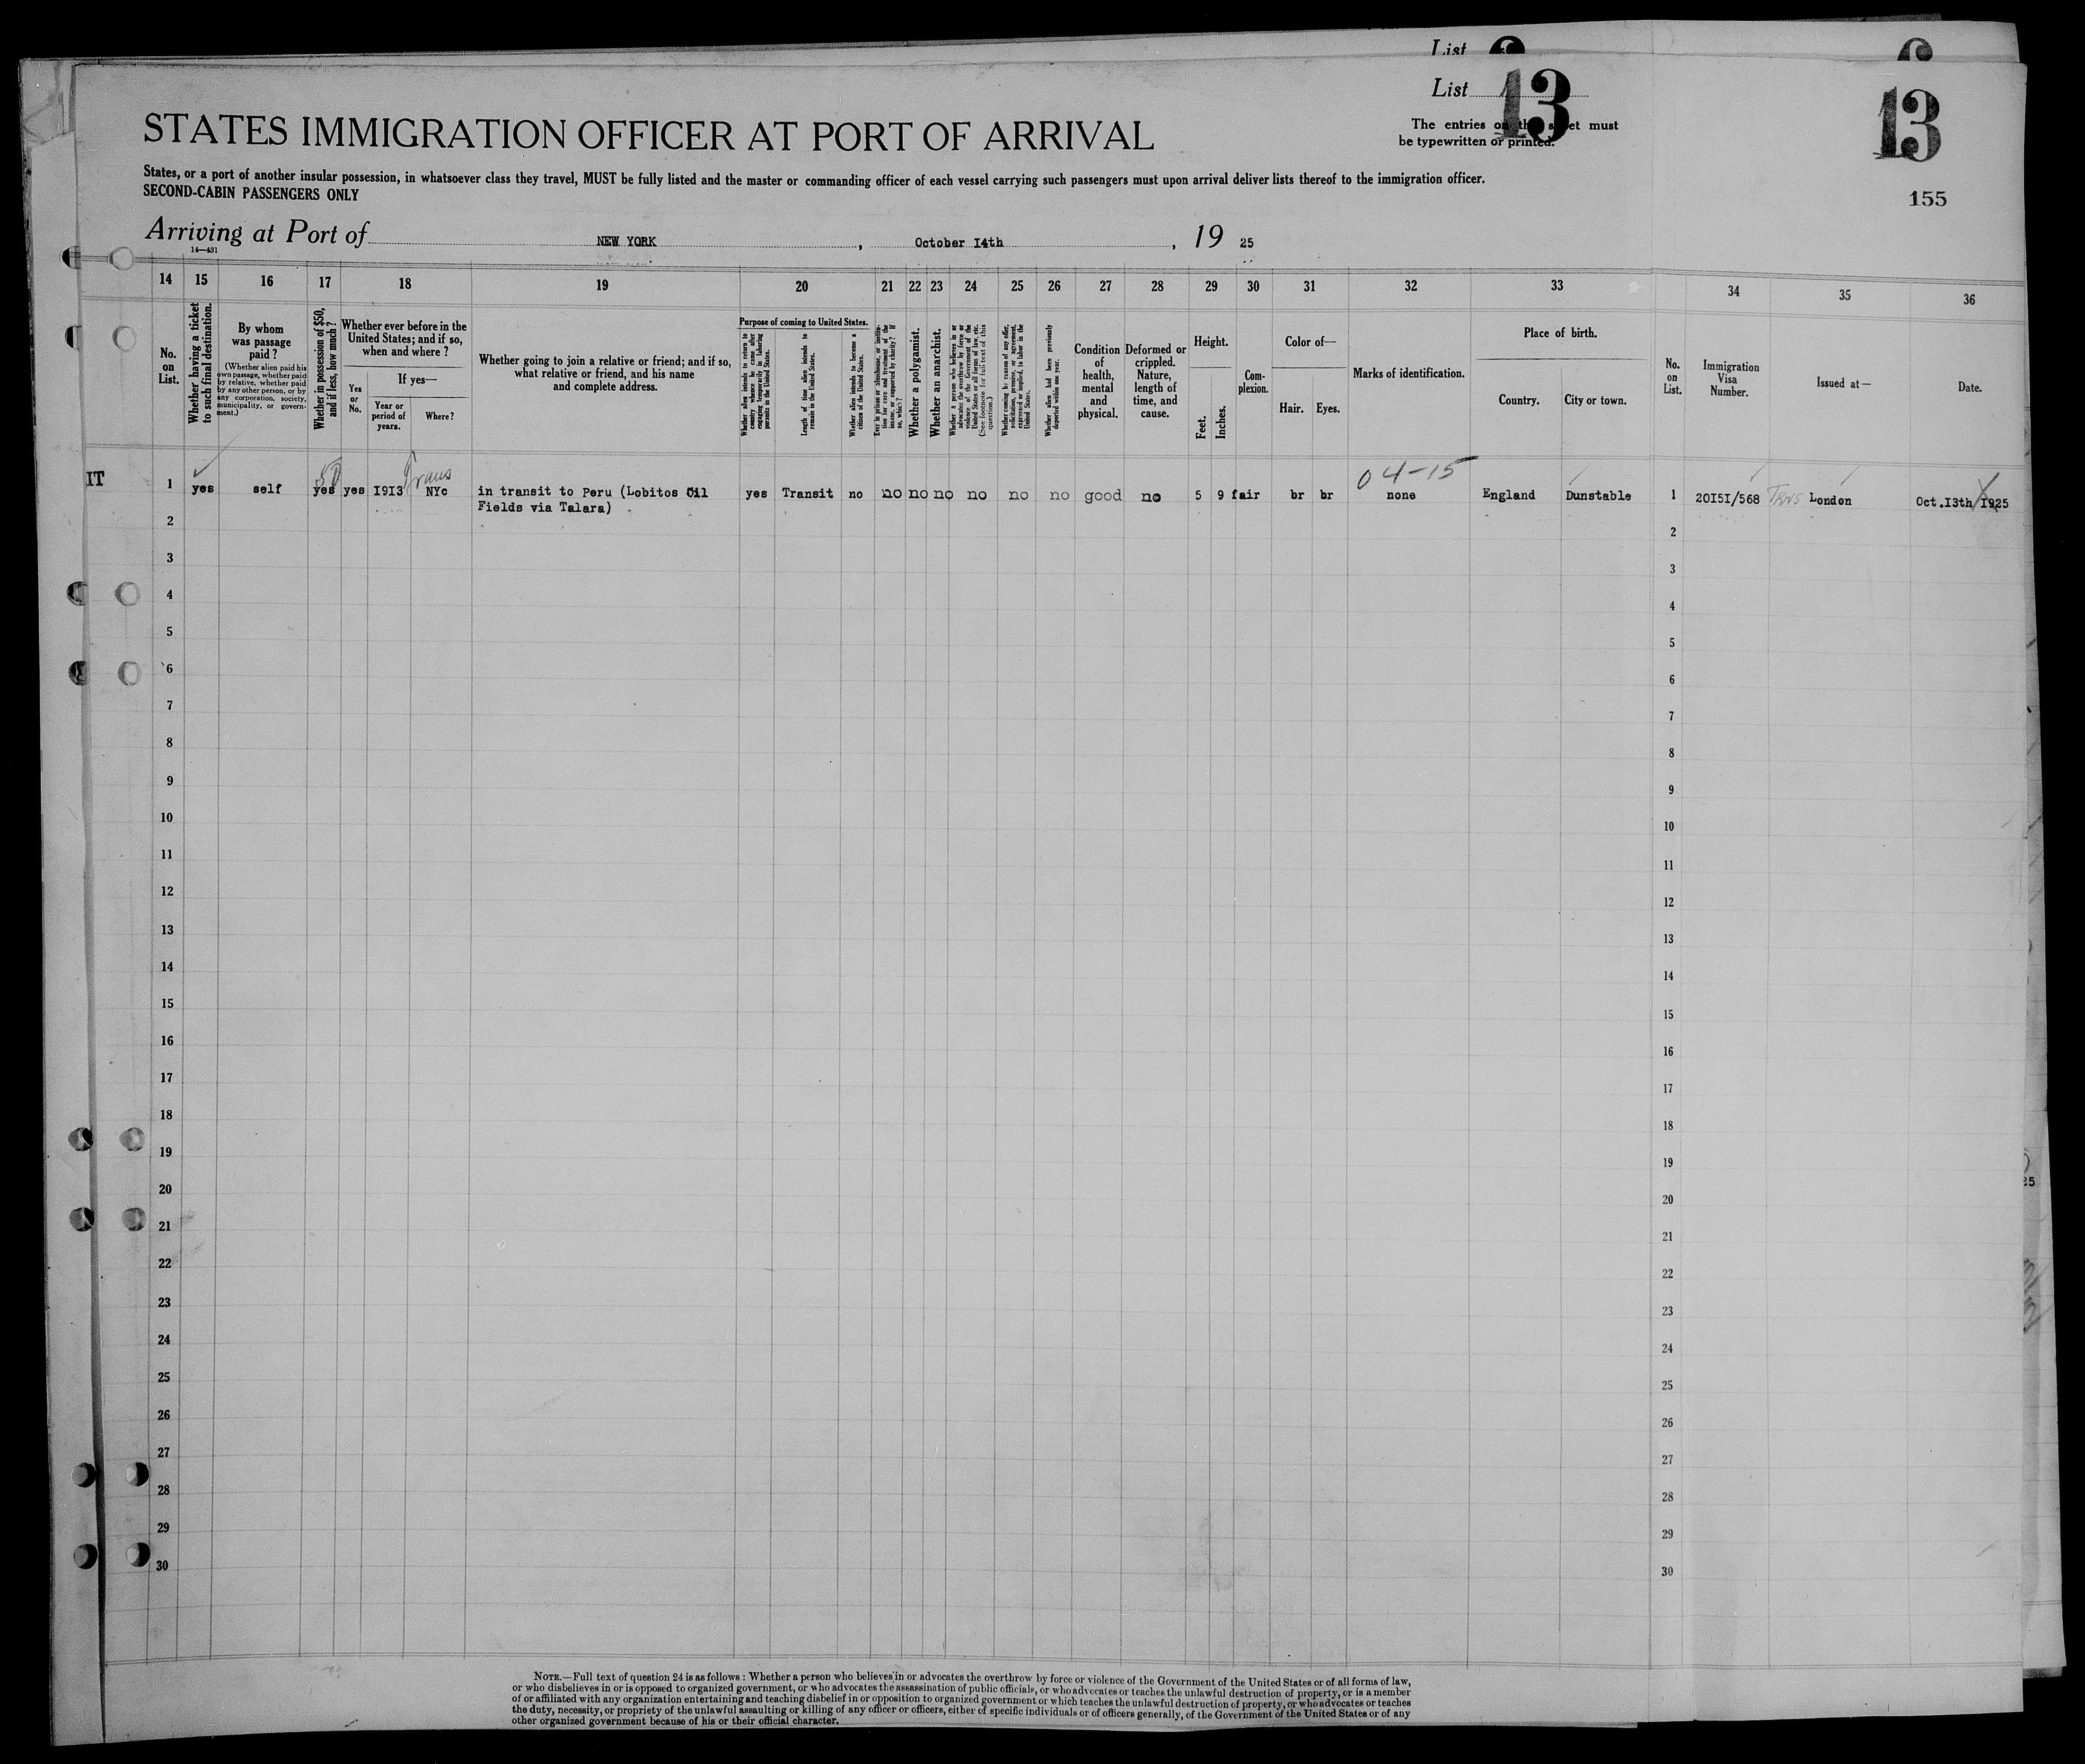 List 6
List 13
13
The entries on this sheet must
be typewritten or printed.
STATES IMMIGRATION OFFICER AT PORT OF ARRIVAL
States, or a port of another insular possession, in whatsoever class they travel, MUST be fully listed and the master or commanding officer of each vessel carrying such passengers must upon arrival deliver lists thereof to the immigration officer.
SECOND-CABIN PASSENGERS ONLY
155
Arriving at Port of NEW YORK, October 14th, 19 25
14—431
14 15 16 17 18 19 20 21 22 23 24 25 26 27 28 29 30 31 32 33 34 35 36
No. on List.
Whether having a ticket to such final destination.
By whom was passage paid?
(Whether alien paid his own passage, whether paid by relative, whether paid by any other person, or by any corporation, society, municipality, or government.)
Whether in possession of $50, and if less, how much?
Whether ever before in the United States; and if so, when and where?
Yes or No.
If yes—
Year or period of years.
Where?
Whether going to join a relative or friend; and if so, what relative or friend, and his name and complete address.
Purpose of coming to United States.
Whether alien intends to return to country whence he came after engaging temporarily in laboring pursuits in the United States.
Length of time alien intends to remain in the United States.
Whether alien intends to become a citizen of the United States.
Ever in prison or almshouse, or institution for care and treatment of the insane, or supported by charity? If so, which?
Whether a polygamist.
Whether an anarchist.
Whether a person who believes in or advocates the overthrow by force or violence of the Government of the United States or all forms of law, etc. (See footnote for full text of this question.)
Whether coming by reason of any offer, solicitation, promise, or agreement, expressed or implied, to labor in the United States.
Whether alien had been previously deported within one year.
Condition of health, mental and physical.
Deformed or crippled. Nature, length of time, and cause.
Height.
Feet.
Inches.
Complexion.
Color of—
Hair.
Eyes.
Marks of identification.
Place of birth.
Country.
City or town.
No. on List.
Immigration Visa Number.
Issued at—
Date.
50 Trans 04-15
IT 1 yes self yes yes 1913 NYc in transit to Peru (Lobitos Oil yes Transit no no no no no no no good no 5 9 fair br br none England Dunstable 1 20151/568 Trns London Oct.13th 1925
Fields via Talara)
2 2
3 3
4 4
5 5
6 6
7 7
8 8
9 9
10 10
11 11
12 12
13 13
14 14
15 15
16 16
17 17
18 18
19 19
20 20
21 21
22 22
23 23
24 24
25 25
26 26
27 27
28 28
29 29
30 30
NOTE.—Full text of question 24 is as follows: Whether a person who believes in or advocates the overthrow by force or violence of the Government of the United States or of all forms of law,
or who disbelieves in or is opposed to organized government, or who advocates the assassination of public officials, or who advocates or teaches the unlawful destruction of property, or is a member
of or affiliated with any organization entertaining and teaching disbelief in or opposition to organized government or which teaches the unlawful destruction of property, or who advocates or teaches
the duty, necessity, or propriety of the unlawful assaulting or killing of any officer or officers, either of specific individuals or of officers generally, of the Government of the United States or of any
other organized government because of his or their official character.